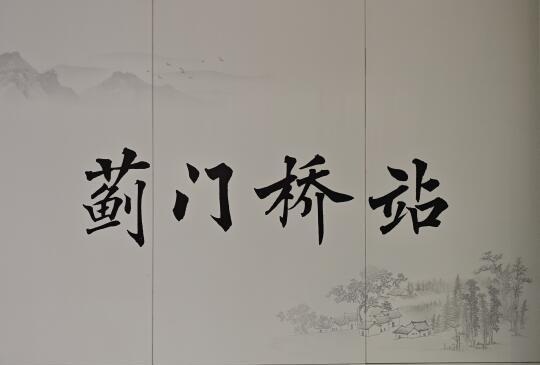 蓟门桥站